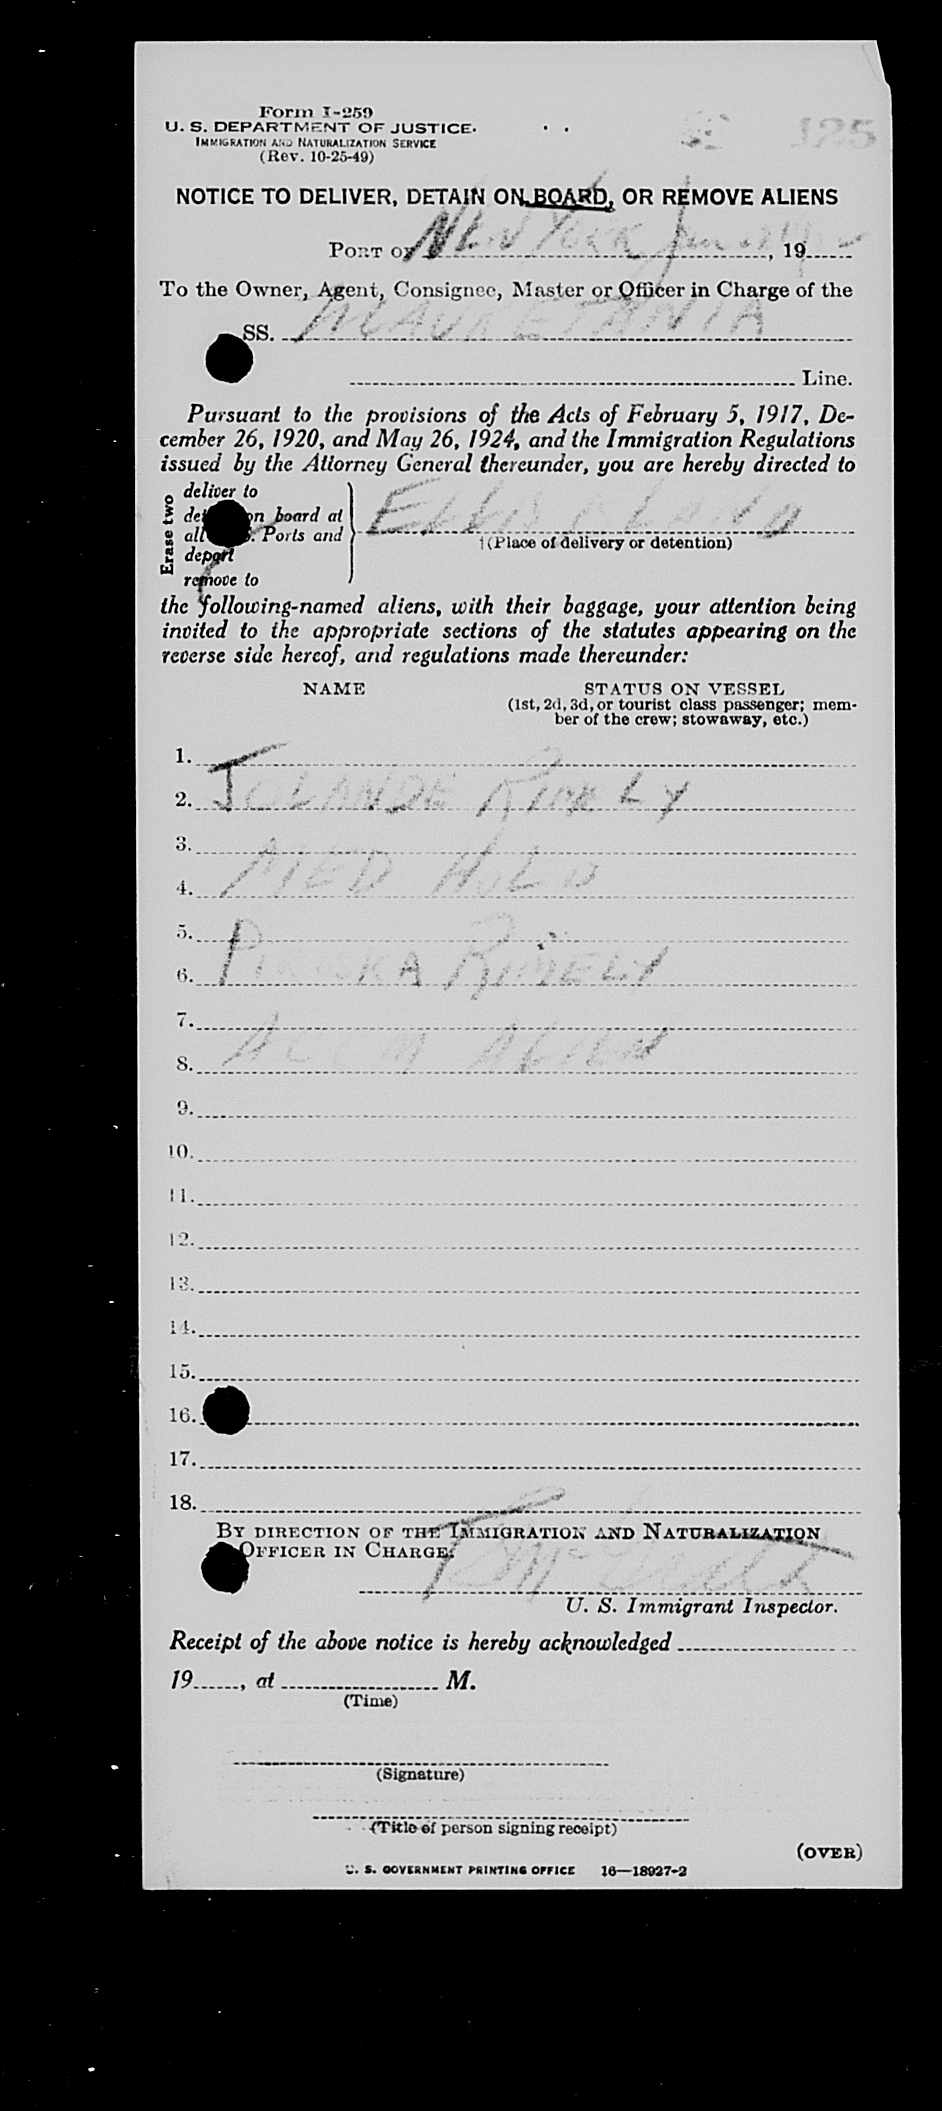 Form I-259
U. S. DEPARTMENT OF JUSTICE
IMMIGRATION AND NATURALIZATION SERVICE
(Rev. 10-25-49)
185
NOTICE TO DELIVER, DETAIN ON BOARD, OR REMOVE ALIENS
PORT OF NEW YORK Jan , 19
To the Owner, Agent, Consignee, Master or Officer in Charge of the
SS. MAURETANIA
Line.
Pursuant to the provisions of the Acts of February 5, 1917, De-
cember 26, 1920, and May 26, 1924, and the Immigration Regulations
issued by the Attorney General thereunder, you are hereby directed to
Erase two
deliver to
on board at
Ports and
deport
remove to
ELLIS ISLAND
(Place of delivery or detention)
the following-named aliens, with their baggage, your attention being
invited to the appropriate sections of the statutes appearing on the
reverse side hereof, and regulations made thereunder:
NAME STATUS ON VESSEL
(1st, 2d, 3d, or tourist class passenger; mem-
ber of the crew; stowaway, etc.)
1.
2. JOLANDE RIMELY
3.
4. MED HOLD
5.
6. RIMELY
7.
8. ACCM ALIEN
9.
10.
11.
12.
13.
14.
15.
16.
17.
18.
BY DIRECTION OF THE IMMIGRATION AND NATURALIZATION
OFFICER IN CHARGE:
U. S. Immigrant Inspector.
Receipt of the above notice is hereby acknowledged
19 , at M.
(Time)
(Signature)
(Title of person signing receipt)
(OVER)
U. S. GOVERNMENT PRINTING OFFICE 16—18927-2